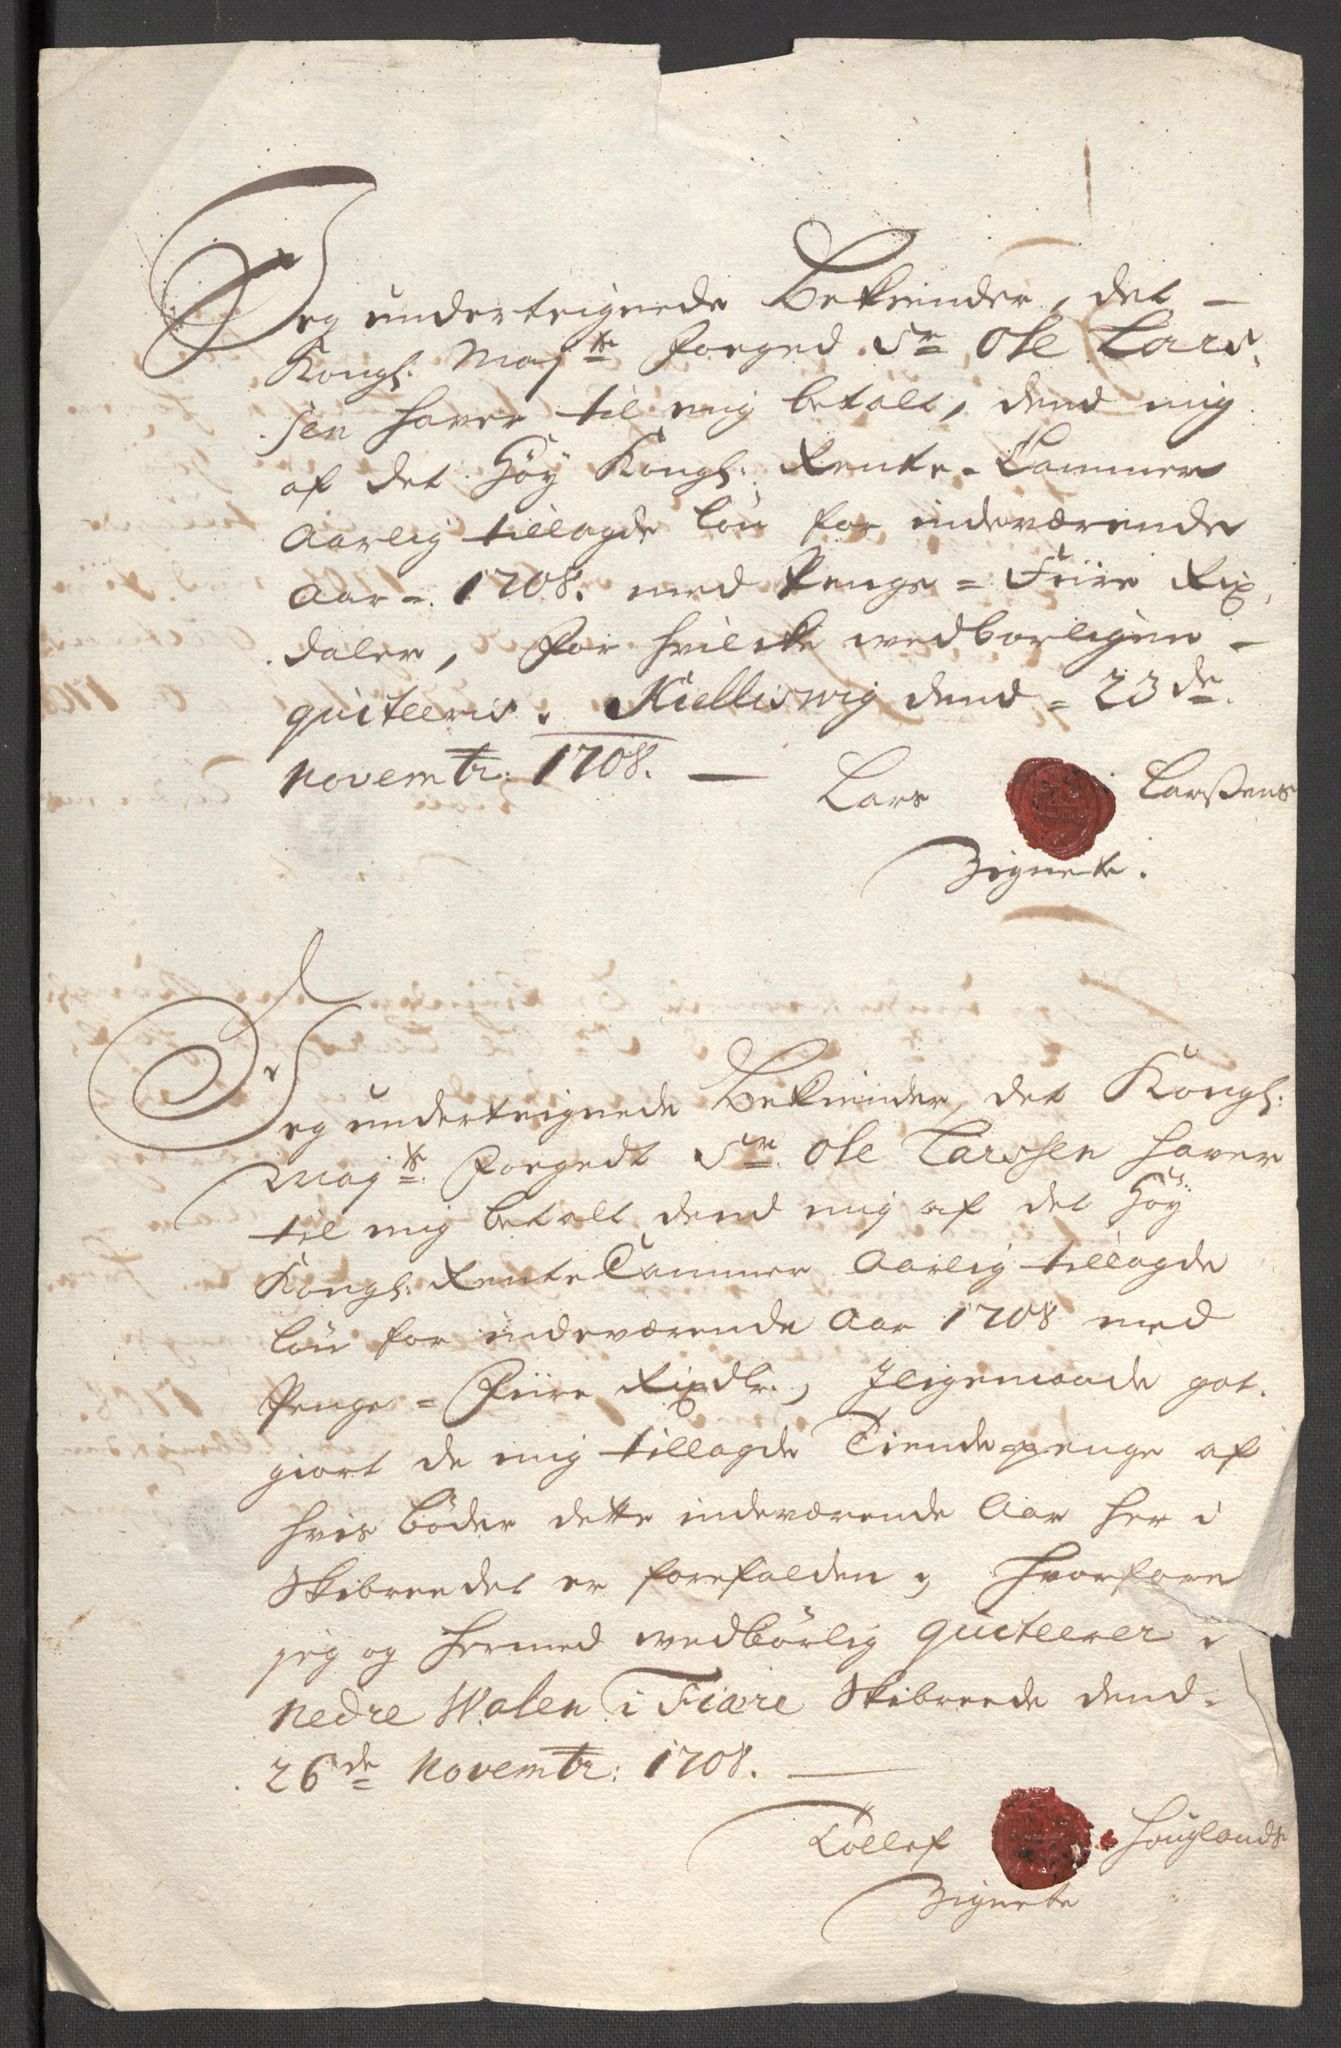 Jeg underteignede Bekiender, det
Kongl: Majtz Foeged Sr Ole Lars-
sen haver til mig betalt, dend mig
af det Höy Kongl: Rente-Cammer
Aarlig tillagde Löu for indeværende
Aar. 1708. med Penge = Fiire Rix
daler, for hvilcke wedborligen
quiteeris. Kielliswig dend = 23de
Novembr: 1708.
Lars Larssens
Zignete.
Jeg underteignede Bekiender, det Kongl:
Majtz Foegedt Sr. Ole Larssen haver
til mig betalt dend mig af det Höy
Kongl: Rente Cammer Aarlig tillagde
Löu for indeværende Aar 1708 med
Penge = Fiire Rixdlr., Jligemaade got-
giort de mig tillagde Tiendepenge af
hvis böder dette indeværende Aar her i
Skibreedet er forefalden, hvorfore
jeg og hermed wedbörlig quiteerer
Nedre Walen i Fiære Skibreede dend
26de Novembr: 1708.
Tollef Houglands
Zignete